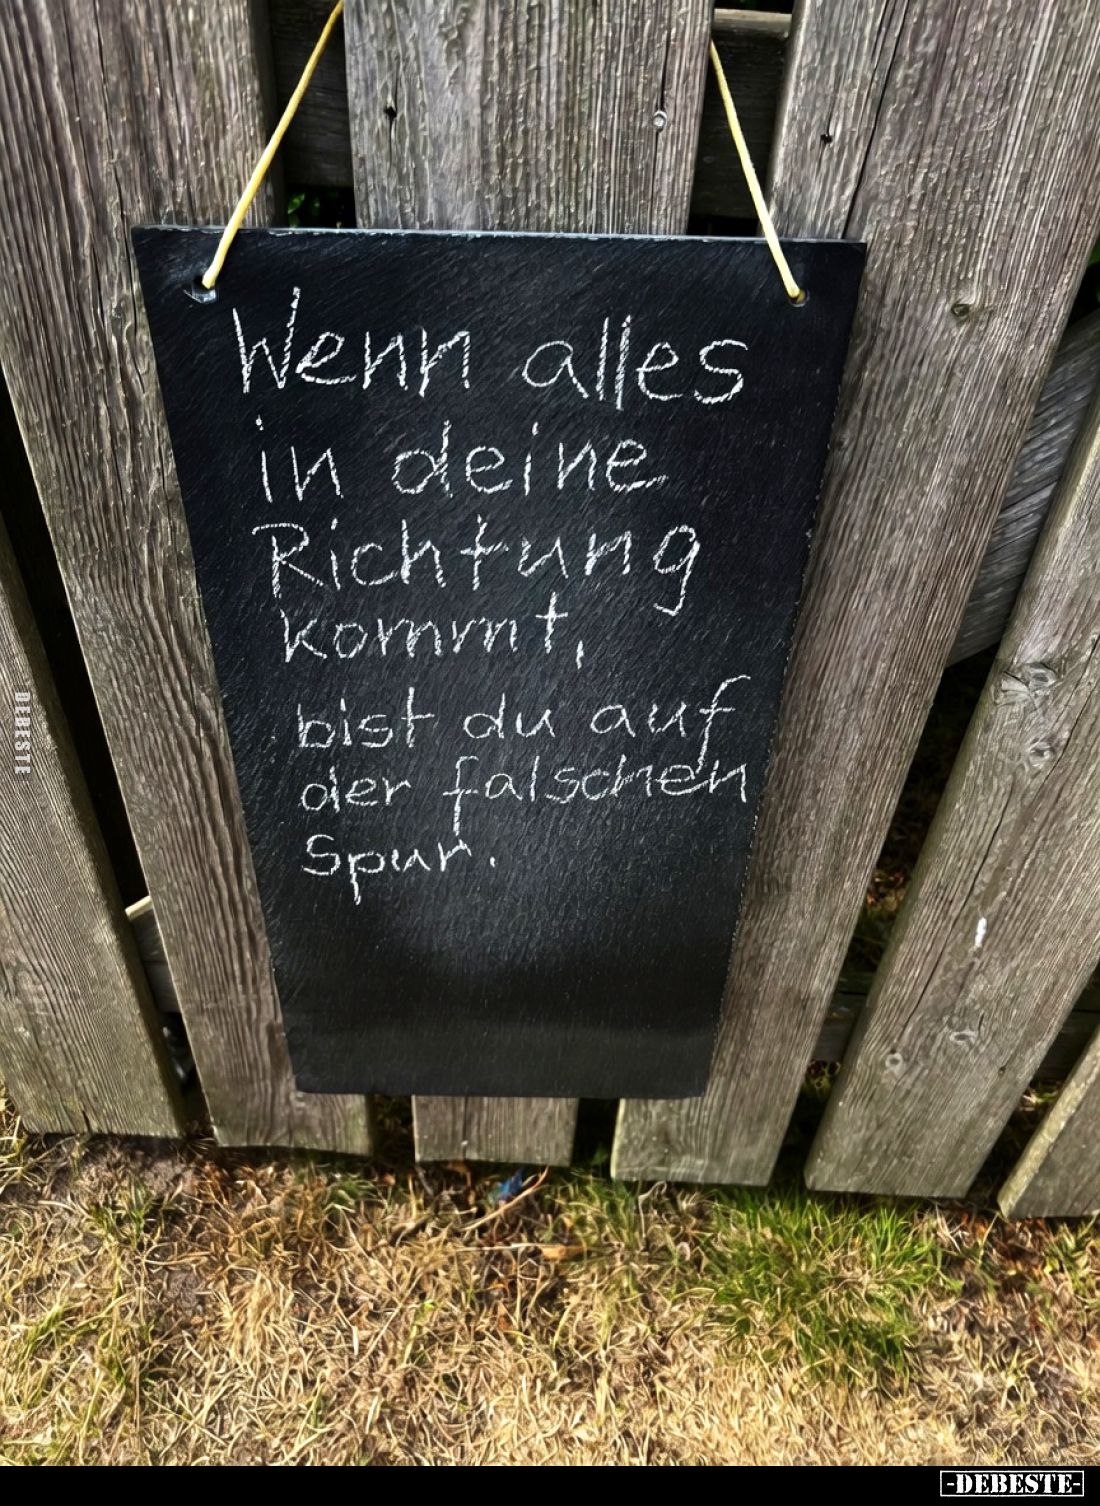 Wenn alles
in deine
Richtung
kommt,
bist du auf
der falschen
Spur.
DEBESTE
-DEBESTE-